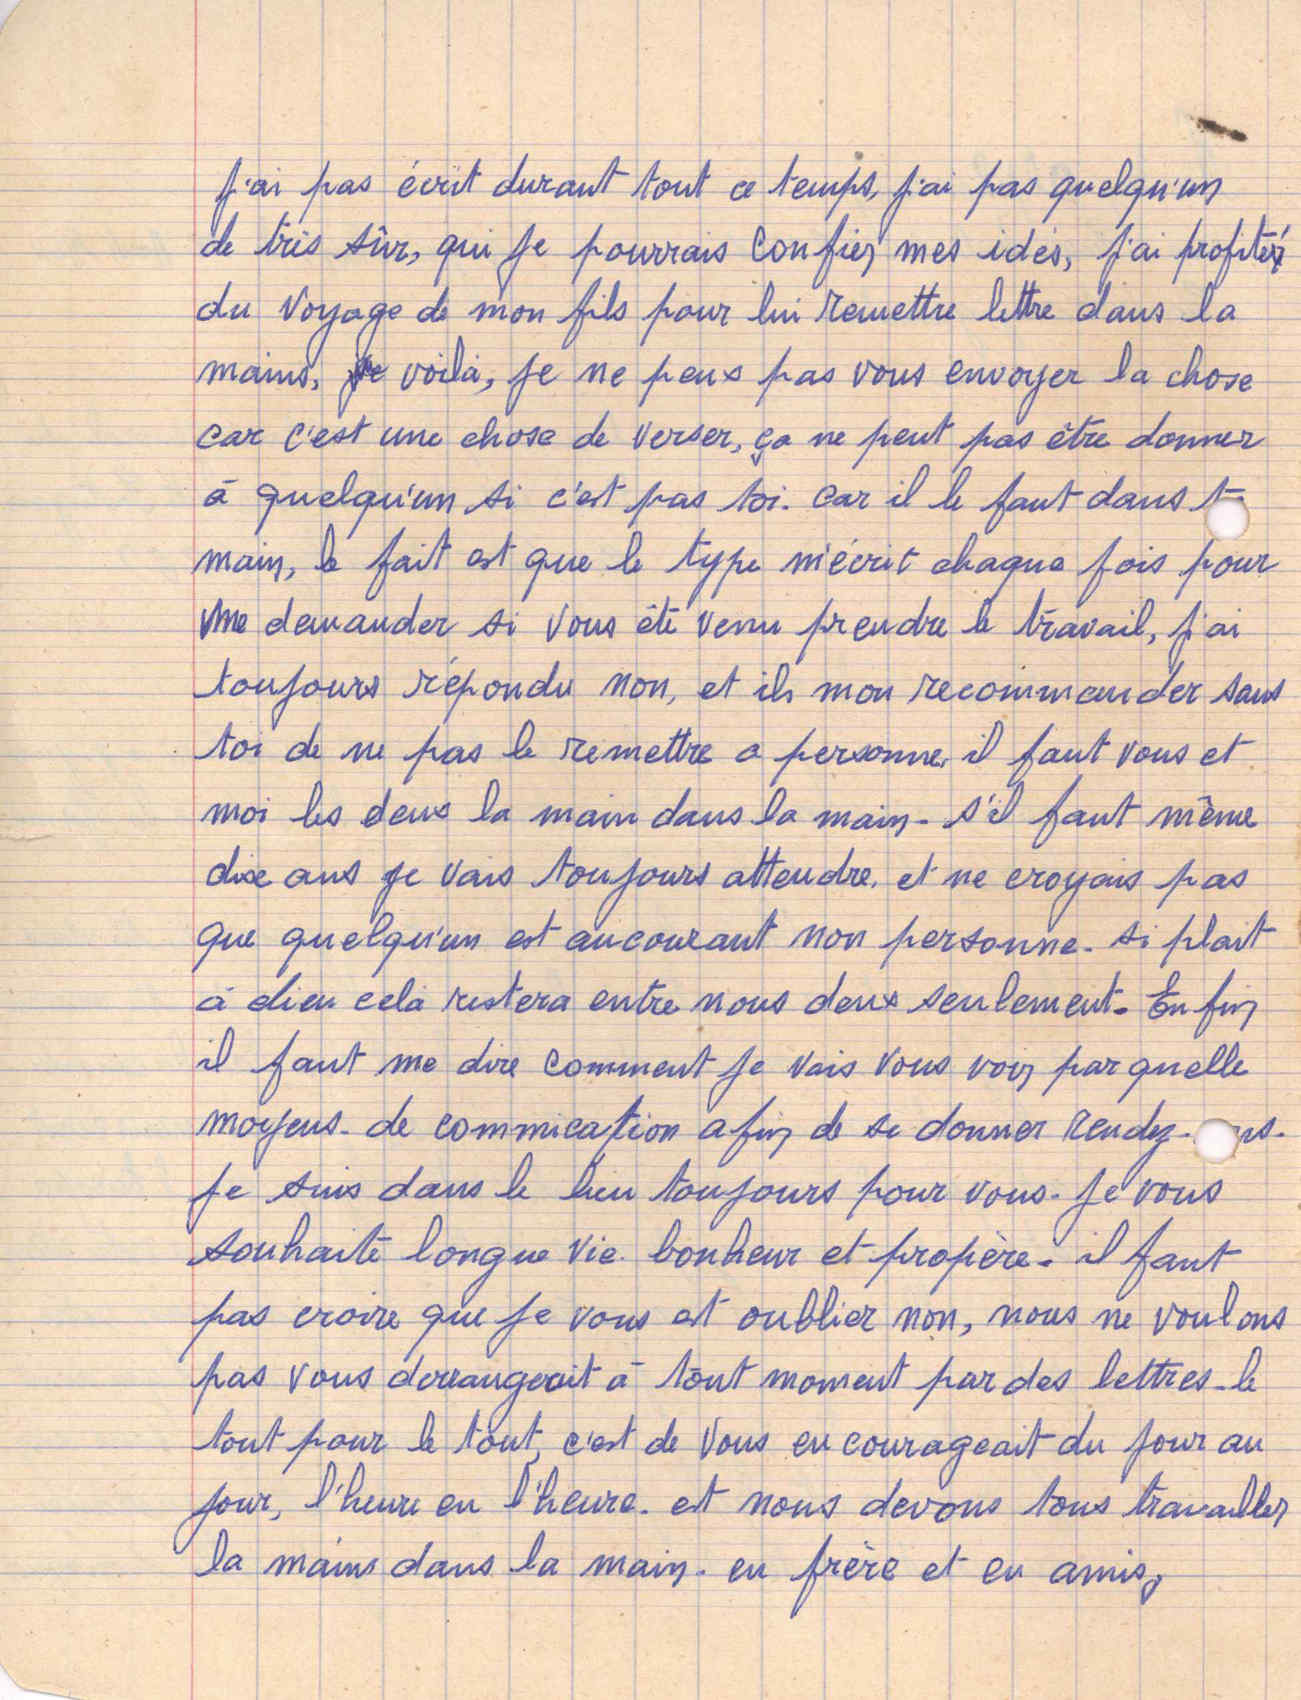 j'ai pas écrit durant tout ce temps, j'ai pas quelqu'un
de très sûr, qui je pourrais confier mes idés, j'ai profiter
du voyage de mon fils pour lui remettre lettre dans la
mains, voilà, je ne peux pas vous envoyer la chose
car c'est une chose de verser, ça ne peut pas être donner
à quelqu'un si c'est pas toi. car il le faut dans
main, le fait est que le type m'écrit chaque fois pour
me demander si vous été venu prendre le travail, j'ai
toujours répondu non, et ils mon recommander sans
toi de ne pas le remettre a personne, il faut vous et
moi les deux la main dans la main - s'il faut même
dixe ans je vais toujours attendre, et ne croyais pas
que quelqu'un est aucourant non personne - si plait
à dieu celà restera entre nous deux seulement. En fin
il faut me dire comment je vais vous voir par quelle
moyens - de commication a fin de se donner rendez-
je suis dans le lieu toujours pour vous. je vous
souhaite longue vie bonheur et propère. il faut
pas croire que je vous est oublier non, nous ne voulons
pas vous derrangeait à tout moment par des lettres - le
tout pour le tout, c'est de vous en courageait du jour au
jour, l'heure en l'heure. et nous devons tous travailler
la mains dans la main. en frère et en amis,